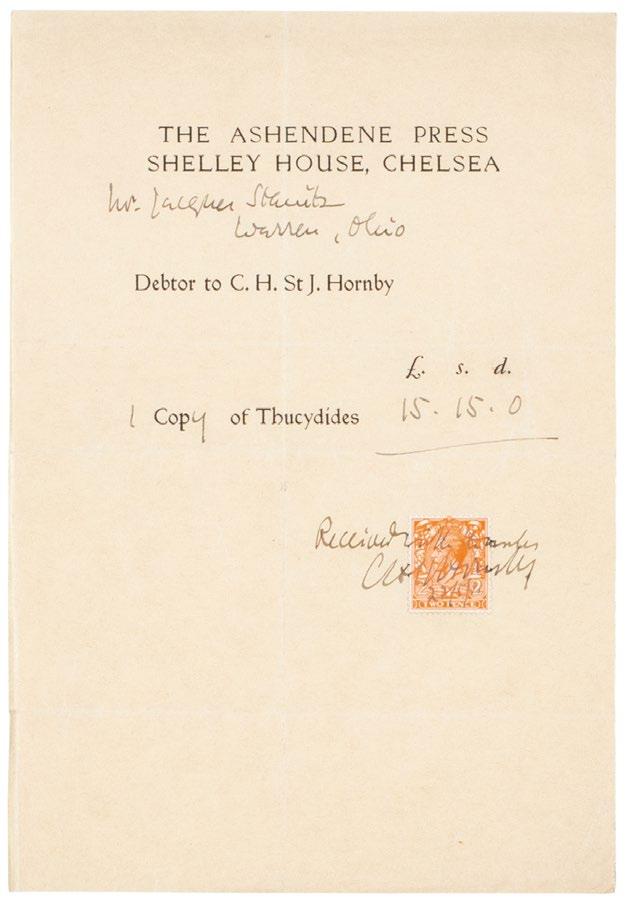 THE ASHENDENE PRESS
SHELLEY HOUSE, CHELSEA
Mr. Jacques
Warren, Ohio
Debtor to C. H. St J. Hornby
£. s. d.
1 Copy of Thucydides 15. 15. 0
Received with thanks
CH St J Hornby
TWO PENCE